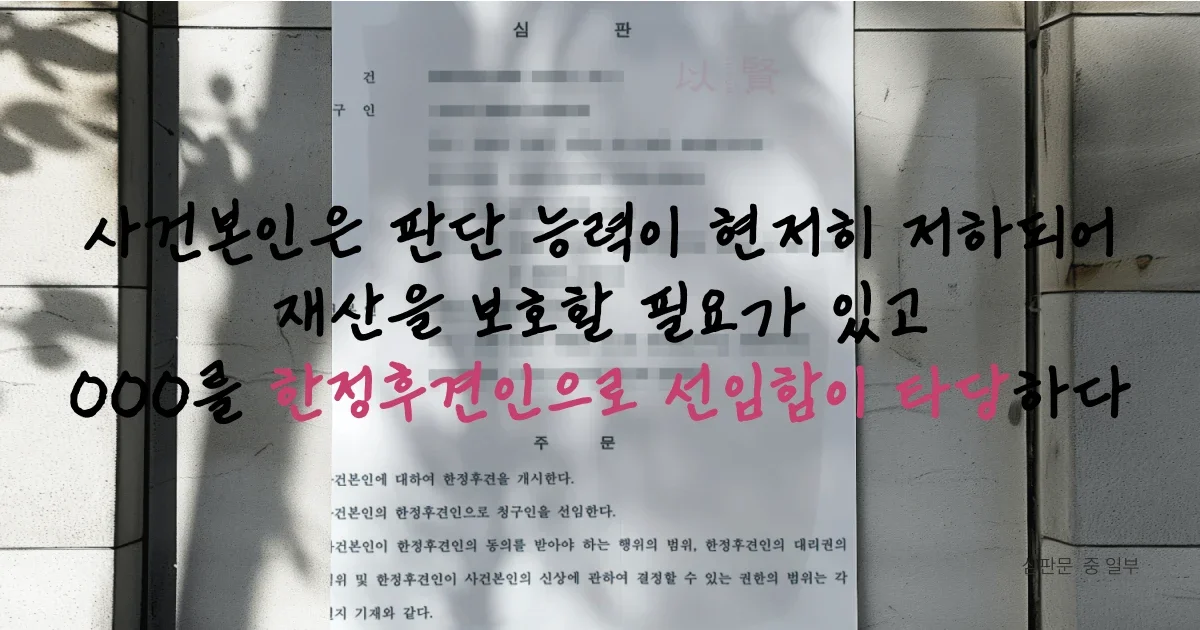 심 판
건
구 인
以 賢
사건본인은 판단 능력이 현저히 저하되어
재산을 보호할 필요가 있고
OOO를 한정후견인으로 선임함이 타당하다
주 문
건본인에 대하여 한정후견을 개시한다.
건본인의 한정후견인으로 청구인을 선임한다.
건본인이 한정후견인의 동의를 받아야 하는 행위의 범위, 한정후견인의 대리권의
위 및 한정후견인이 사건본인의 신상에 관하여 결정할 수 있는 권한의 범위는 각
지 기재와 같다.
심판문 중 일부